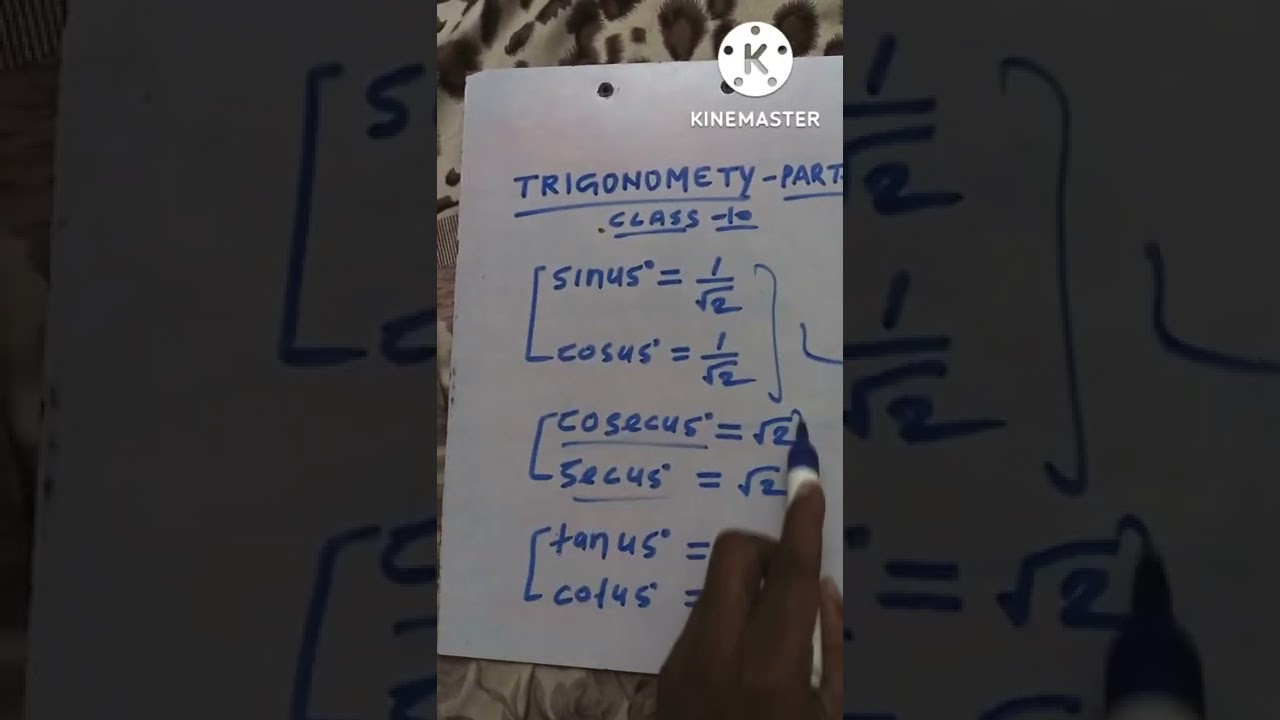 KINEMASTER
TRIGONOMETY - PART
CLASS - 10
sin45° = 1/√2
cos45° = 1/√2
cosec45° = √2
sec45° = √2
tan45° =
cot45° =